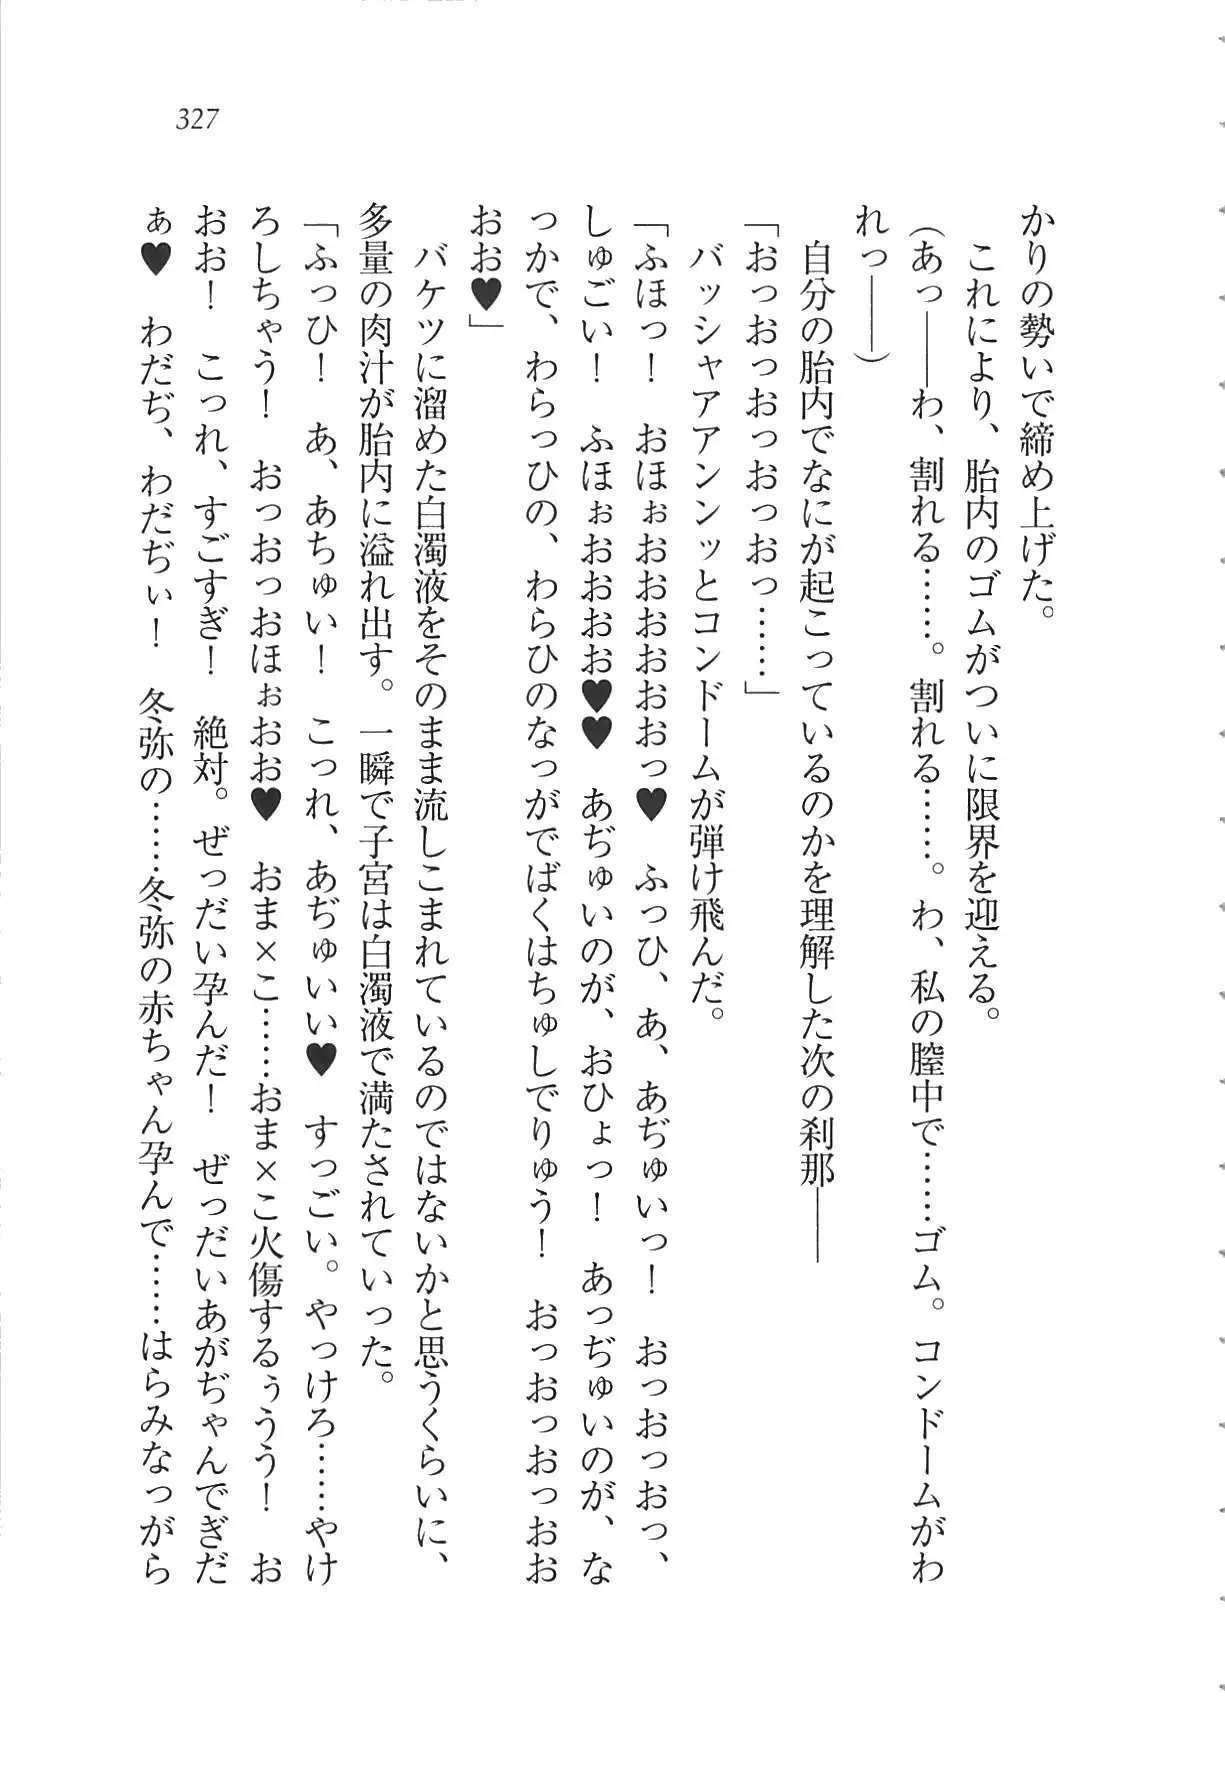 327
かりの勢いで締め上げた。
これにより、胎内のゴムがついに限界を迎える。
(あっ――わ、割れる……。割れる……。わ、私の膣中で……ゴム。コンドームがわ
れっ――)
自分の胎内でなにが起こっているのかを理解した次の刹那――
「おっおっおっおっおっ……」
バッシャアアンンッとコンドームが弾け飛んだ。
「ふほっ！　おほぉおおおおおおっ♥　ふっひ、あ、あぢゅいっ！　おっおっおっ、
しゅごい！　ふほぉおおおお♥♥　あぢゅいのが、おひょっ！　あっぢゅいのが、な
っかで、わらっひの、わらひのなっがでばくはちゅしでりゅう！　おっおっおっおお
おお♥」
バケツに溜めた白濁液をそのまま流しこまれているのではないかと思うくらいに、
多量の肉汁が胎内に溢れ出す。一瞬で子宮は白濁液で満たされていった。
「ふっひ！　あ、あちゅい！　こっれ、あぢゅいい♥　すっごい。やっけろ……やけ
ろしちゃう！　おっおっおほぉおお♥　おま×こ……おま×こ火傷するぅうう！　お
おお！　こっれ、すごすぎ！　絶対。ぜっだい孕んだ！　ぜっだいあがぢゃんでぎだ
ぁ♥　わだぢ、わだぢぃ！　冬弥の……冬弥の赤ちゃん孕んで……はらみなっがら